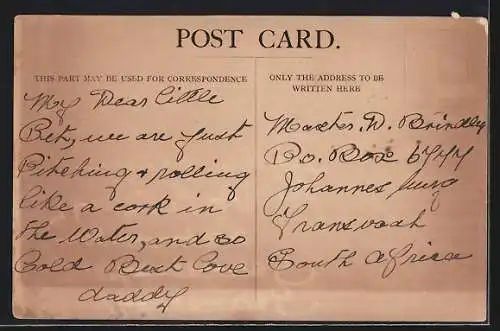 POST CARD.
THIS PART MAY BE USED FOR CORRESPONDENCE
My Dear little
Bet, we are just
Pitching & rolling
like a cork in
the Water, and so
Cold Best Love
daddy
ONLY THE ADDRESS TO BE
WRITTEN HERE
Master. D. Brindley
P.o. Box 6747
Johannesburg
Transvaal
South Africa